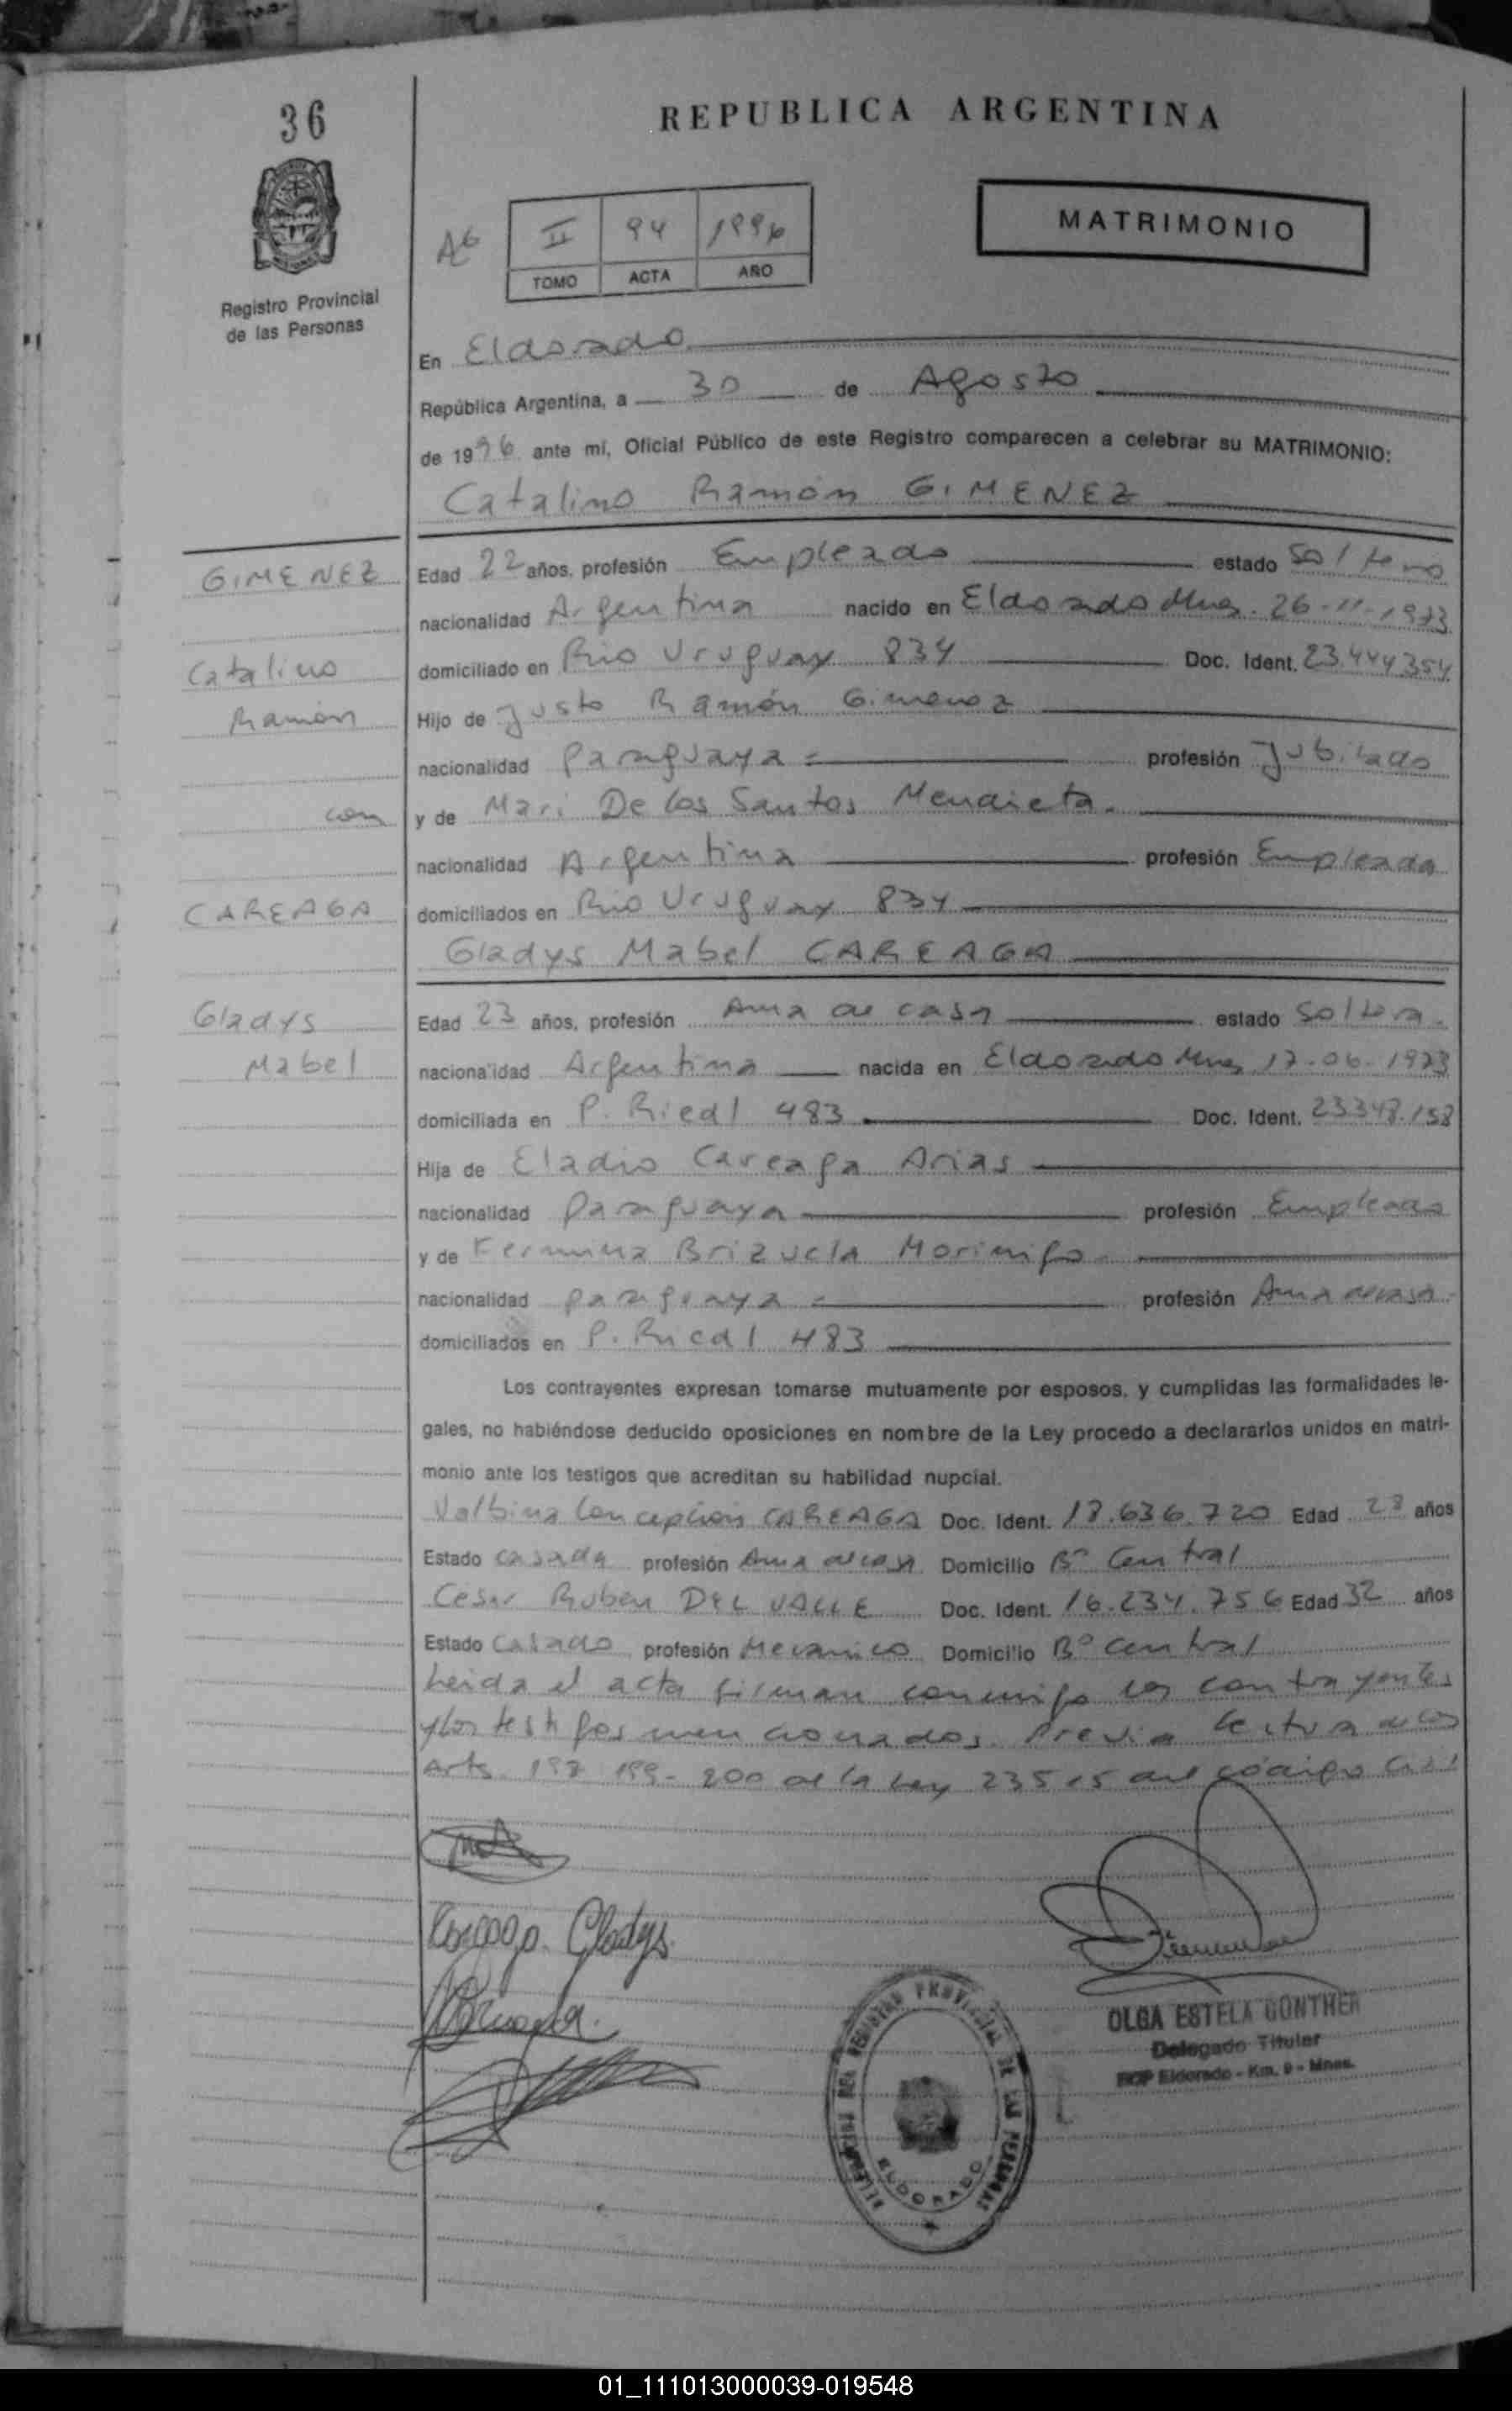 36
REPUBLICA ARGENTINA
MATRIMONIO
II 94 1996
TOMO ACTA AÑO
Registro Provincial
de las Personas
En Eldorado
República Argentina, a 30 de Agosto
de 1996 ante mí, Oficial Público de este Registro comparecen a celebrar su MATRIMONIO:
Catalino Ramón GIMENEZ
GIMENEZ
Edad 22 años, profesión Empleado estado Soltero
nacionalidad Argentina nacido en Eldorado Mnes. 26-11-1973
Catalino
domiciliado en Rio Uruguay 834 Doc. Ident. 23.444354
Ramón
Hijo de Justo Ramón Gimenez
nacionalidad Paraguaya = profesión Jubilado
con
y de Mari De los Santos Mendieta.
nacionalidad Argentina profesión Empleada
CAREAGA
domiciliados en Rio Uruguay 834
Gladys Mabel CAREAGA
Gladys
Edad 23 años, profesión Ama de casa estado Soltera.
Mabel
nacionalidad Argentina nacida en Eldorado Mnes 17-06-1973
domiciliada en P. Riedl 483 Doc. Ident. 23348.158
Hija de Eladio Careaga Arias
nacionalidad Paraguaya profesión Empleado
y de Fermina Brizuela Morinigo
nacionalidad paraguaya = profesión Ama de casa
domiciliados en P. Riedl 483
Los contrayentes expresan tomarse mutuamente por esposos, y cumplidas las formalidades le-
gales, no habiéndose deducido oposiciones en nombre de la Ley procedo a declararlos unidos en matri-
monio ante los testigos que acreditan su habilidad nupcial.
Valbina Concepción CAREAGA Doc. Ident. 18.636.720 Edad 28 años
Estado casada profesión Ama de casa Domicilio Bº Central
César Ruben DEL VALLE Doc. Ident. 16.234.756 Edad 32 años
Estado Casado profesión Mecanico Domicilio Bº Central
Leida el acta firman conmigo los contrayentes
y los testigos mencionados. Previa lectura de los
Arts. 198 199-200 de la Ley 23515 del código Civil
Careaga Gladys
OLGA ESTELA GONTHER
Delegado Titular
RCP Eldorado - Km. 9 - Mnes.
DELEGACION DEL REGISTRO PROVINCIAL DE LAS PERSONAS
ELDORADO
01_111013000039-019548